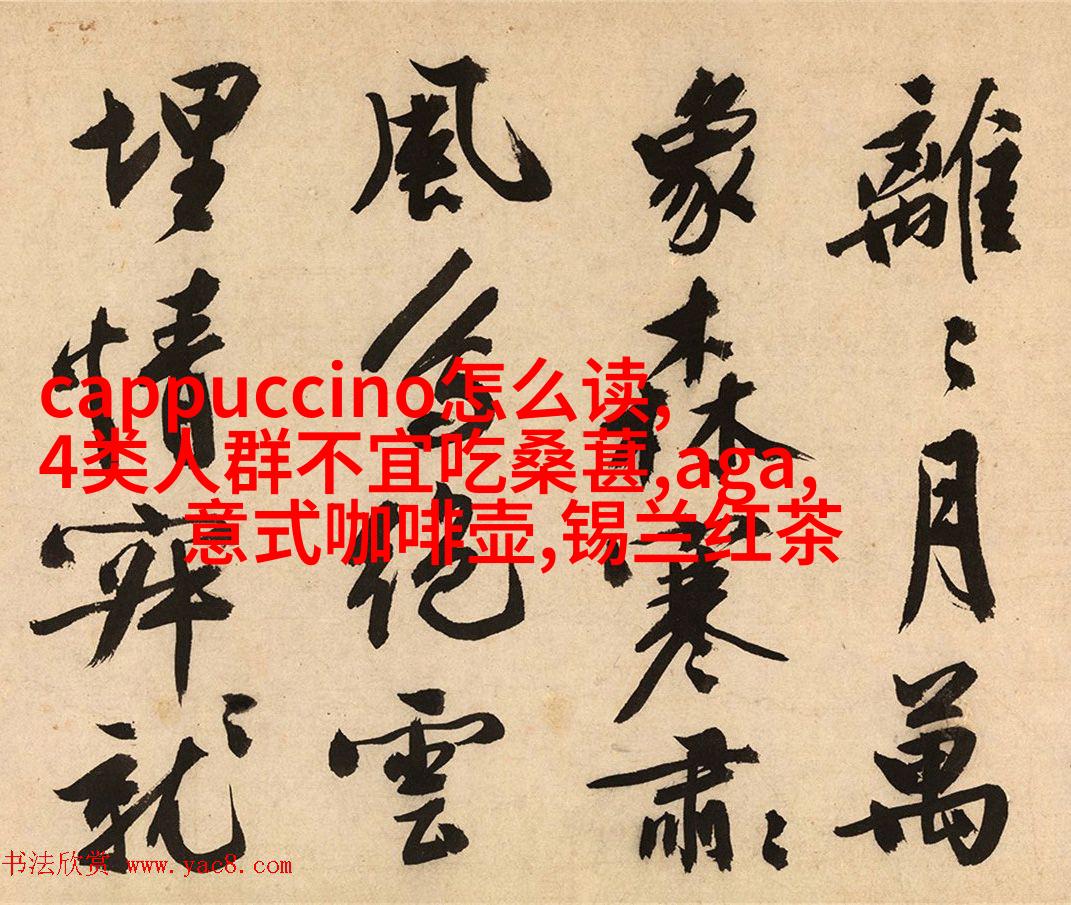 離〻月萬
象森寒肅〻
風雲
埋情就〻
cappuccino怎么读,
4类人群不宜吃桑葚,aga,
意式咖啡壶,锡兰红茶
书法欣赏 www.yac8.com